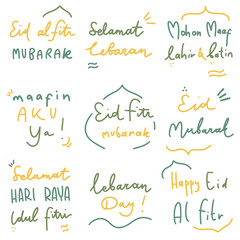 Eid al fitr
MUBARAK
Selamat
lebaran
Mohon Maaf
lahir & batin
maafin
AKU
Ya!
Eid Fitr
mubarak
Eid
Mubarak
Selamat
HARI RAYA
idul fitri
lebaran
Day!
Happy Eid
Al fitr